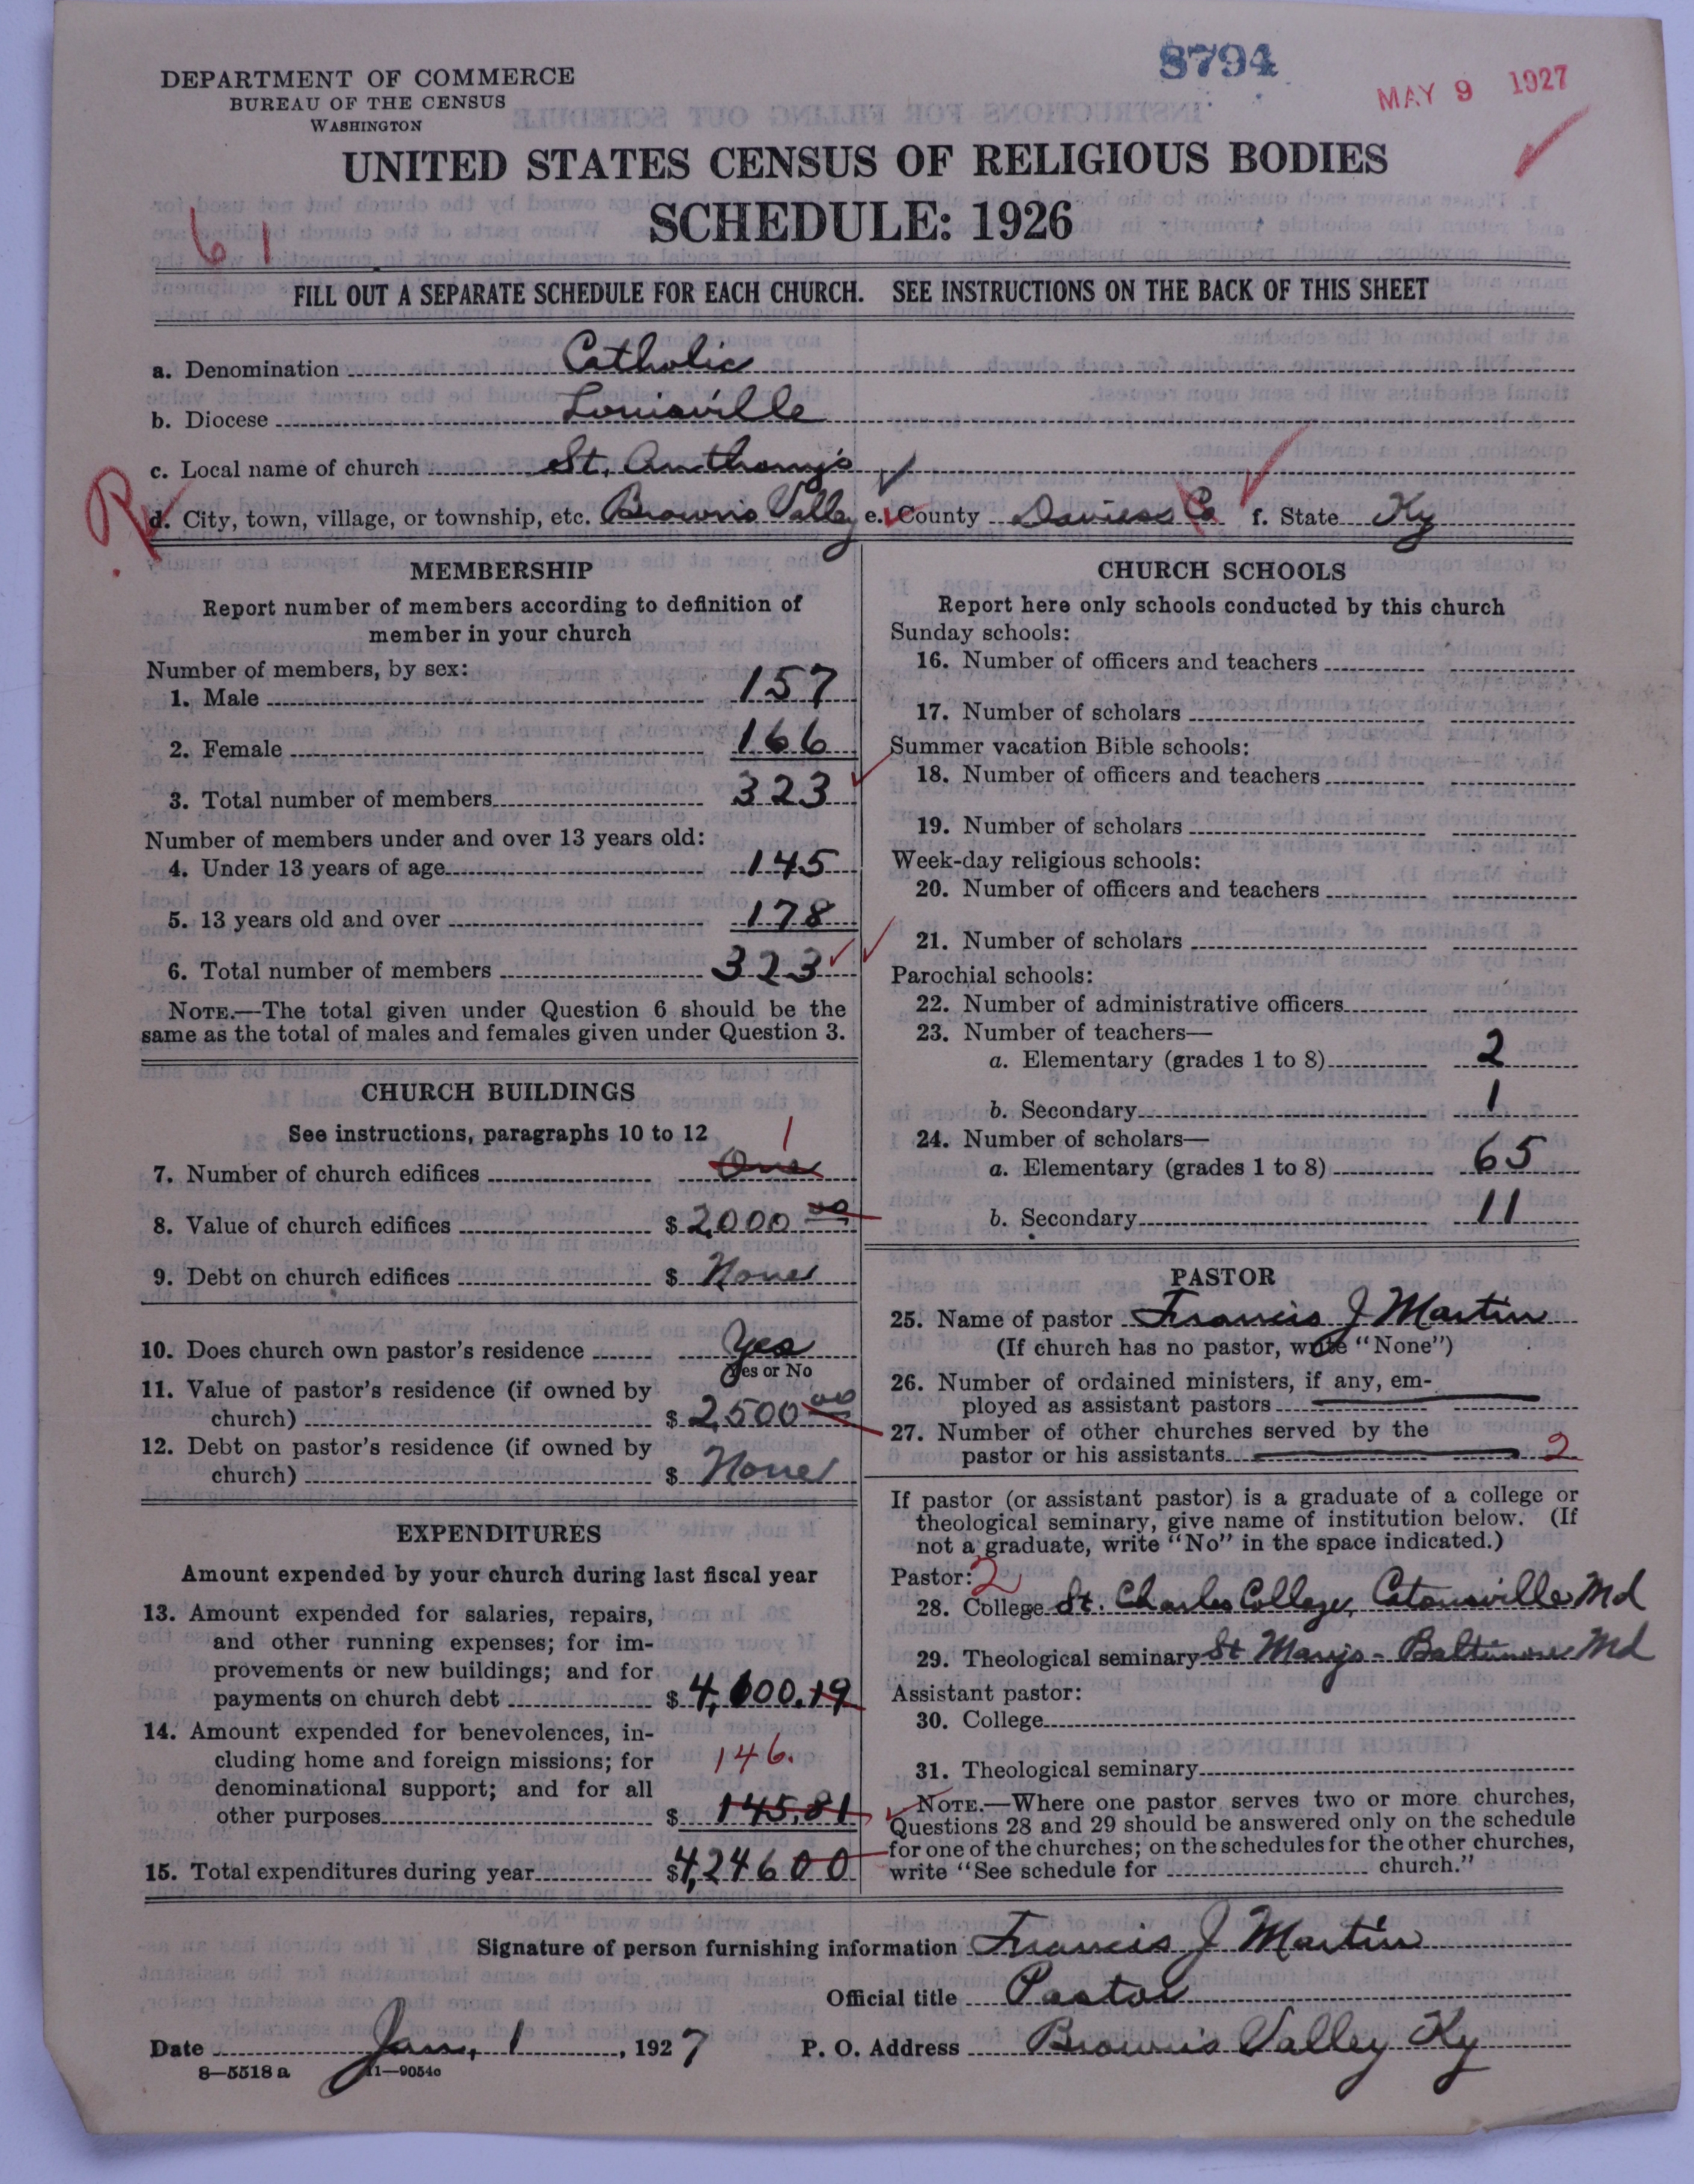 8794
MAY 9 1927
DEPARTMENT OF COMMERCE
BUREAU OF THE CENSUS
WASHINGTON
UNITED STATES CENSUS OF RELIGIOUS BODIES
SCHEDULE: 1926
61
FILL OUT A SEPARATE SCHEDULE FOR EACH CHURCH. SEE INSTRUCTIONS ON THE BACK OF THIS SHEET
a. Denomination Catholic
b. Diocese Louisville
c. Local name of church St. Anthony's
R
d. City, town, village, or township, etc. Browns Valley e. County Daviess Co f. State Ky
MEMBERSHIP
Report number of members according to definition of
member in your church
Number of members, by sex:
1. Male 157
2. Female 166
3. Total number of members 323
Number of members under and over 13 years old:
4. Under 13 years of age 145
5. 13 years old and over 178
6. Total number of members 323
NOTE.—The total given under Question 6 should be the
same as the total of males and females given under Question 3.
CHURCH BUILDINGS
See instructions, paragraphs 10 to 12
1
7. Number of church edifices One
8. Value of church edifices $ 2000 00
9. Debt on church edifices $ None
10. Does church own pastor's residence Yes
Yes or No
11. Value of pastor's residence (if owned by
church) $ 2,500 00
12. Debt on pastor's residence (if owned by
church) $ None
EXPENDITURES
Amount expended by your church during last fiscal year
13. Amount expended for salaries, repairs,
and other running expenses; for im-
provements or new buildings; and for
payments on church debt $ 4,100.19
14. Amount expended for benevolences, in-
cluding home and foreign missions; for 146.
denominational support; and for all
other purposes $ 145.81
15. Total expenditures during year $ 4,246 00
CHURCH SCHOOLS
Report here only schools conducted by this church
Sunday schools:
16. Number of officers and teachers
17. Number of scholars
Summer vacation Bible schools:
18. Number of officers and teachers
19. Number of scholars
Week-day religious schools:
20. Number of officers and teachers
21. Number of scholars
Parochial schools:
22. Number of administrative officers
23. Number of teachers—
a. Elementary (grades 1 to 8) 2
b. Secondary 1
24. Number of scholars—
a. Elementary (grades 1 to 8) 65
b. Secondary 11
PASTOR
25. Name of pastor Francis J Martin
(If church has no pastor, write "None")
26. Number of ordained ministers, if any, em-
ployed as assistant pastors
27. Number of other churches served by the
pastor or his assistants 2
If pastor (or assistant pastor) is a graduate of a college or
theological seminary, give name of institution below. (If
not a graduate, write "No" in the space indicated.)
Pastor: 2
28. College St. Charles College, Catonsville Md
29. Theological seminary St Marys - Baltimore Md
Assistant pastor:
30. College
31. Theological seminary
NOTE.—Where one pastor serves two or more churches,
Questions 28 and 29 should be answered only on the schedule
for one of the churches; on the schedules for the other churches,
write "See schedule for church."
Signature of person furnishing information Francis J Martin
Official title Pastor
Date Jan, 1, 1927 P. O. Address Browns Valley Ky
8—5518 a 11—9054c